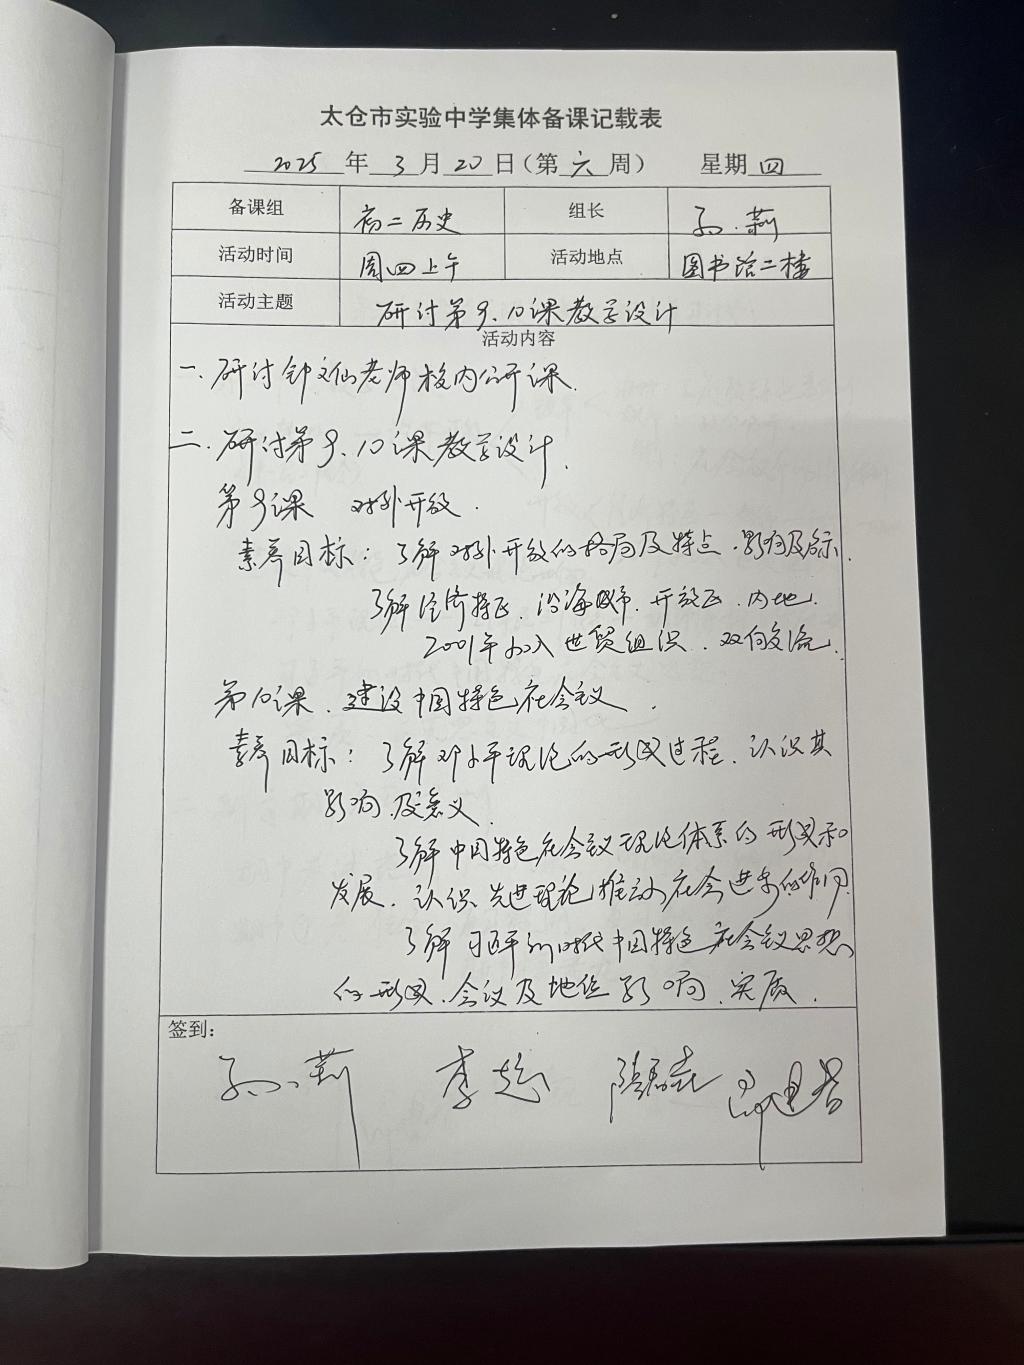 太仓市实验中学集体备课记载表
2025 年 3 月 20 日(第 六 周) 星期 四
备课组 初二历史 组长 孙莉
活动时间 周四上午 活动地点 图书馆二楼
活动主题 研讨第9、10课教学设计
活动内容
一. 研讨钟文仙老师校内公开课.
二. 研讨第9、10课教学设计.
第9课 对外开放.
素养目标: 了解对外开放的格局及特点、影响及启示.
了解经济特区、沿海城市、开放区、内地.
2001年加入世贸组织、双向交流.
第10课、建设中国特色社会主义.
素养目标: 了解邓小平理论的形成过程、认识其
影响及意义.
了解中国特色社会主义理论体系的形成和
发展、认识先进理论推动社会进步的作用.
了解习近平新时代中国特色社会主义思想
的形成、会议及地位影响、实质.
签到:
孙莉 李